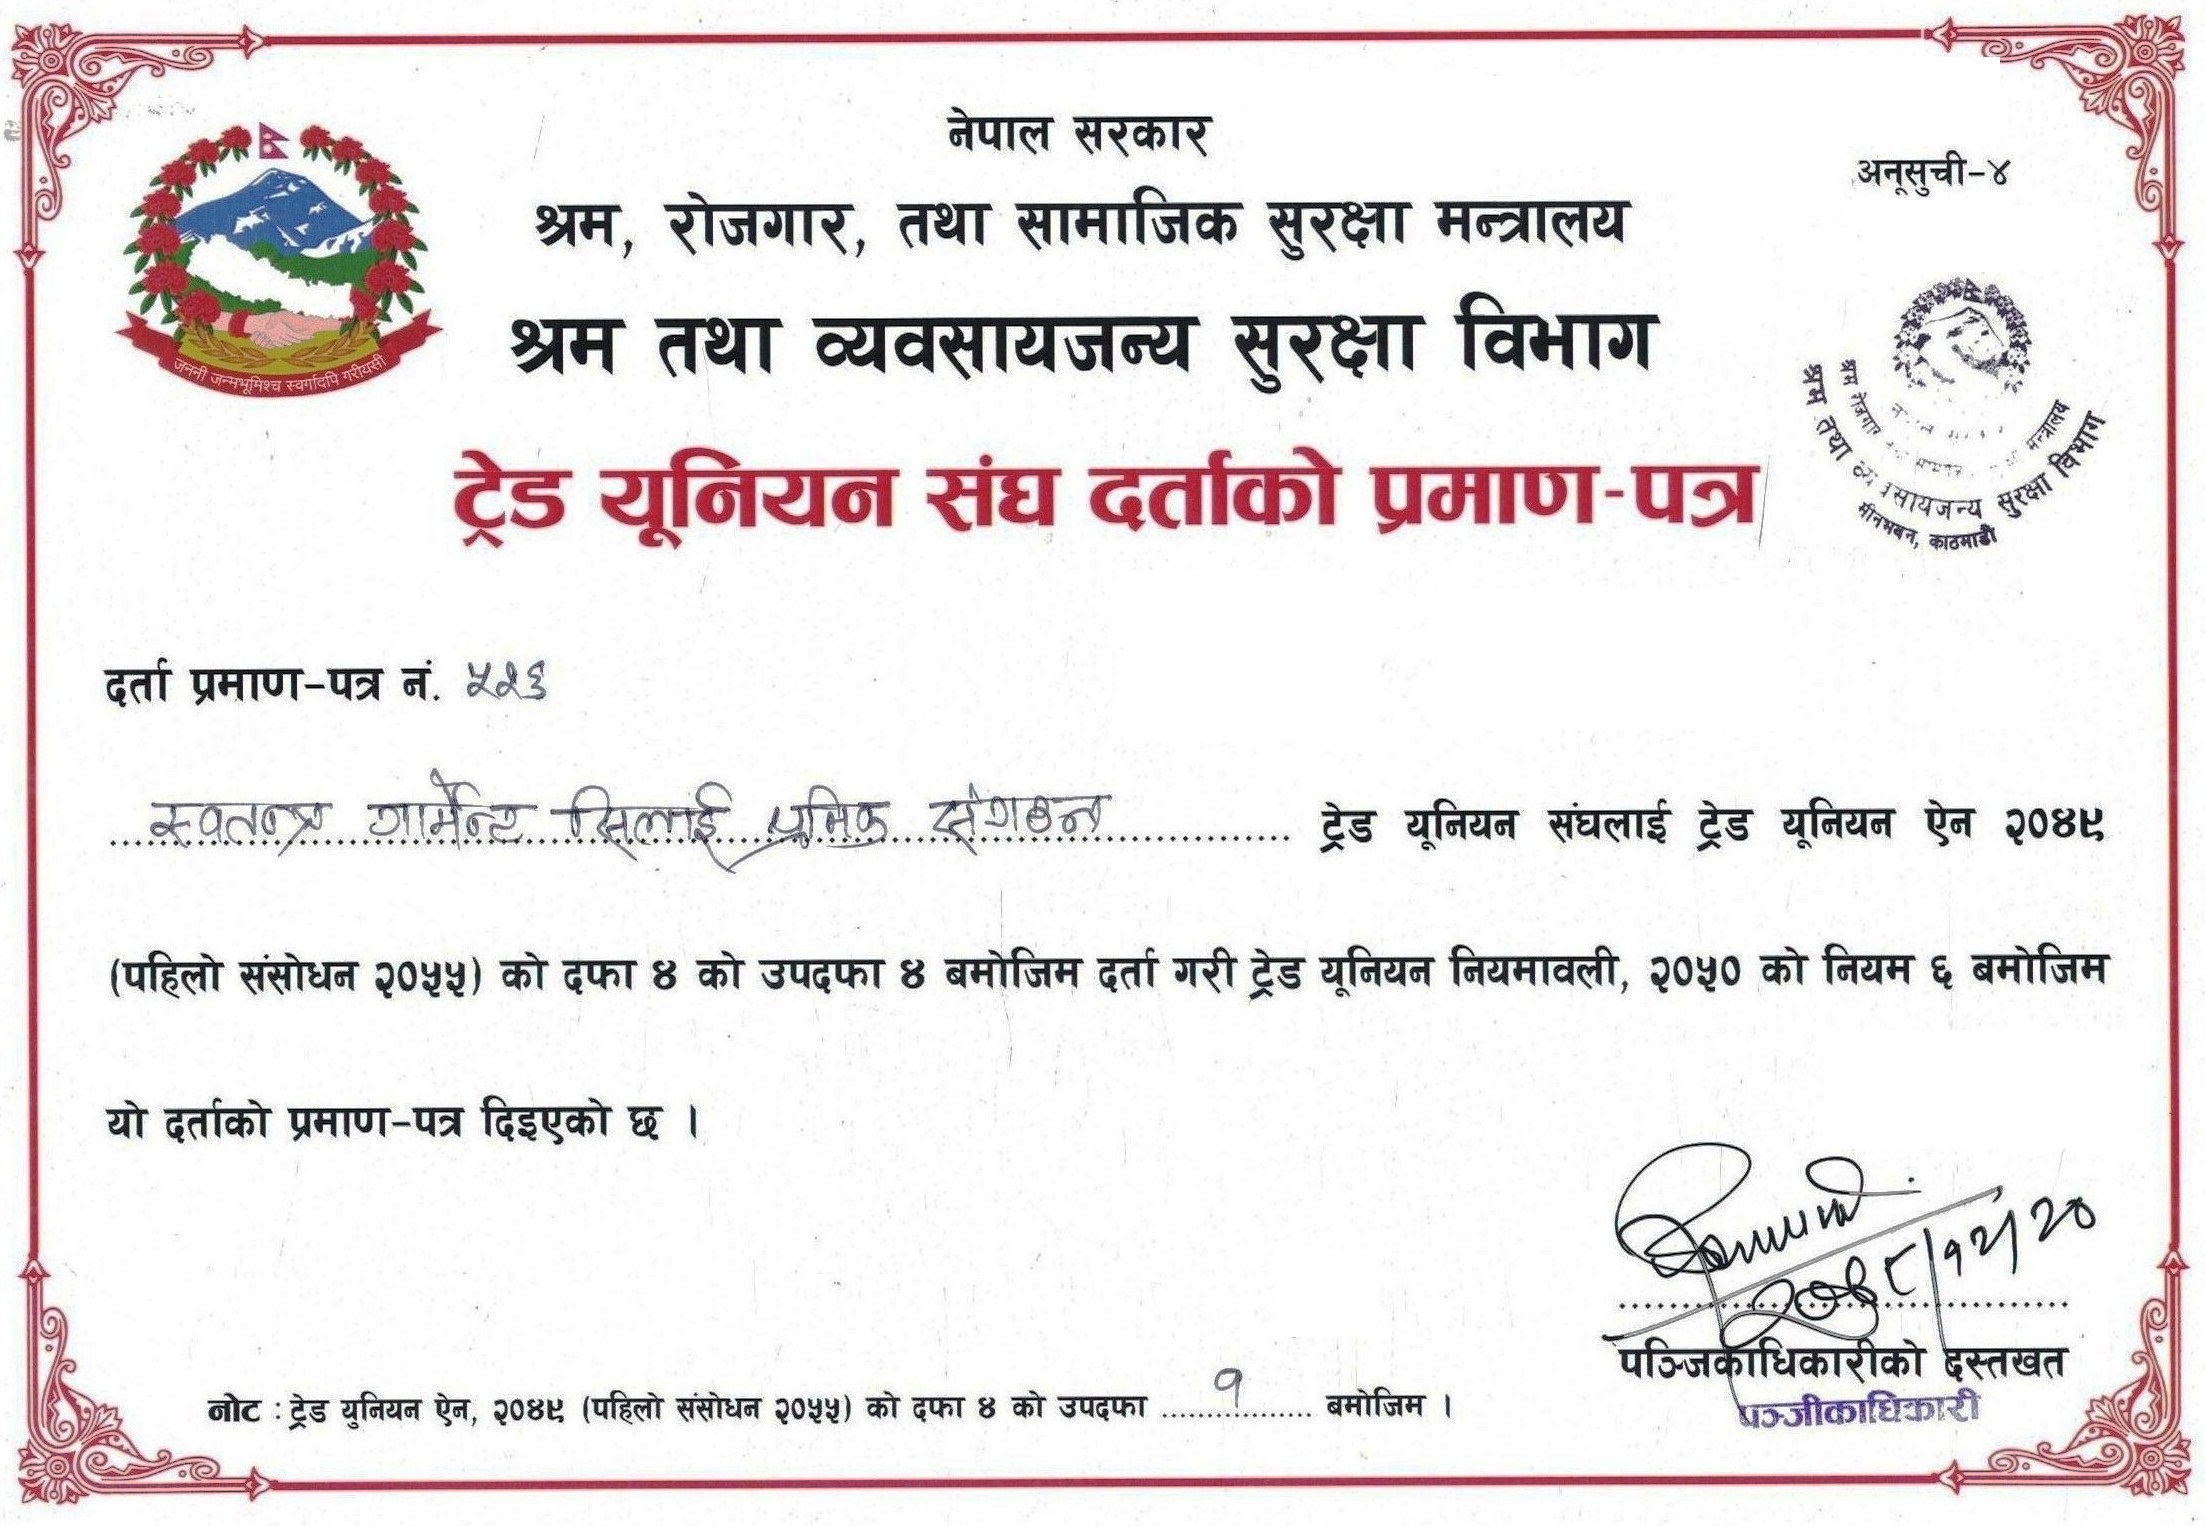 नेपाल सरकार
अनूसुची-४
श्रम, रोजगार, तथा सामाजिक सुरक्षा मन्त्रालय
श्रम तथा व्यवसायजन्य सुरक्षा विभाग
ट्रेड यूनियन संघ दर्ताको प्रमाण-पत्र
जननी जन्मभूमिश्च स्वर्गादपि गरीयसी
श्रम रोजगार मन्त्रालय
श्रम तथा व्यवसायजन्य सुरक्षा विभाग
मीनभवन, काठमाडौं
दर्ता प्रमाण-पत्र नं. ५२६
स्वतन्त्र गार्मेन्ट सिलाई श्रमिक संगठन ट्रेड यूनियन संघलाई ट्रेड यूनियन ऐन २०४९
(पहिलो संसोधन २०५५) को दफा ४ को उपदफा ४ बमोजिम दर्ता गरी ट्रेड यूनियन नियमावली, २०५० को नियम ६ बमोजिम
यो दर्ताको प्रमाण-पत्र दिइएको छ ।
पञ्जिकाधिकारीको दस्तखत
पञ्जीकाधिकारी
नोट : ट्रेड युनियन ऐन, २०४९ (पहिलो संसोधन २०५५) को दफा ४ को उपदफा १ बमोजिम ।